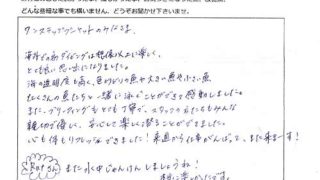 どんな些細な事でも構いません、どうぞお聞かせ下さいませ。
ワンステップワンセットのみなさま
海外での初ダイビングは想像以上に楽しく、
とても良い思い出になりました。
海の透明度も高く、色とりどりの魚や大きい魚や小さい魚、
たくさんの魚たちと一緒に泳ぐことができて感動しました。
また、ブリーフィングもとても丁寧で、スタッフのかたもみんな
親切で優しく、安心して楽しく潜ることができました。
心も体もリフレッシュできました！来週から仕事がんばって、また来まーす！
さん また水中じゃんけんしましょうね！
本当に楽しかったです。